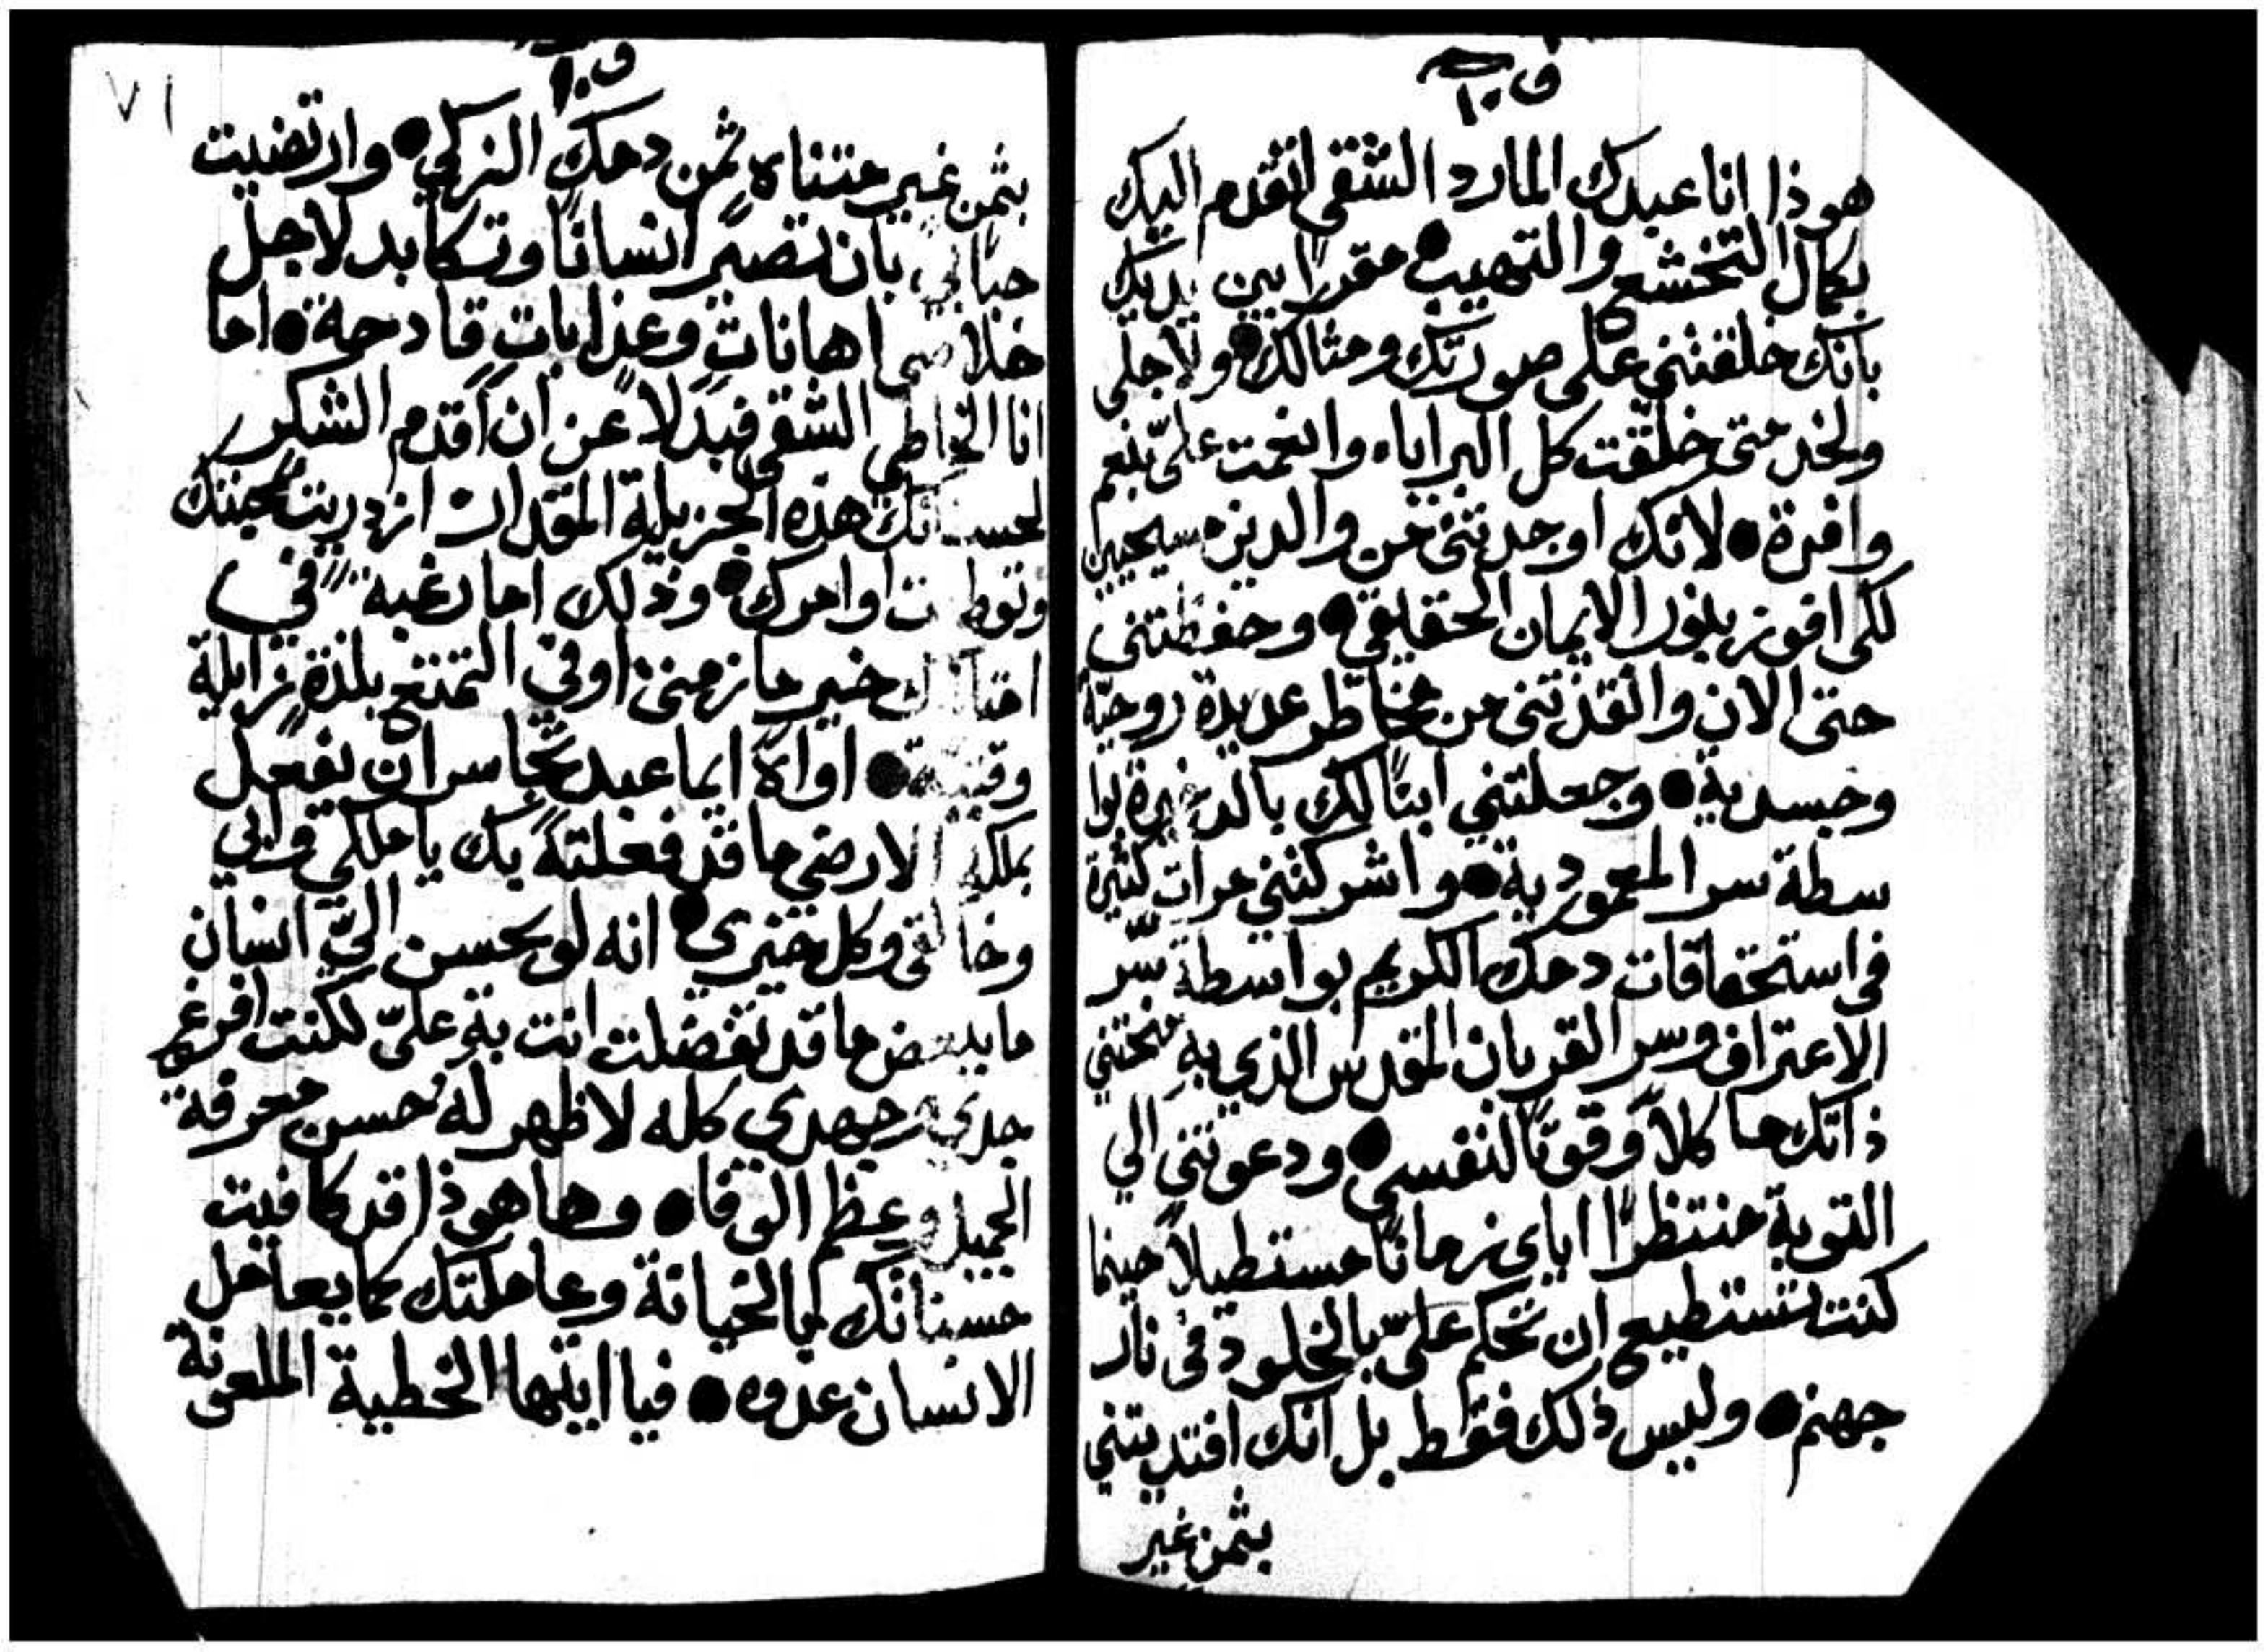 ف ١٠
هوذا انا عبدك المارد الشقي اتقدم اليك
بكمال التخشع والتهيب ● مقرًا بين يديك
بانك خلقتني على صورتك ومثالك ● ولاجلي
ولخدمتي خلقت كل البرايا ● وانعمت عليّ بنعم
وافرة ● لانك اوجدتني من والدين مسيحيين
لكي افوز بنور الايمان الحقيقي ● وحفظتني
حتى الان وانقذتني من مخاطر عديدة روحيّة
وجسدية ● وجعلتني ابنًا لك بالذخيرة بوا
سطة سر المعمودية ● واشركتني مرات كثيرة
في استحقاقات دمك الكريم بواسطة سّر
الاعتراف وسر القربان المقدس الذي به منحتني
ذاتك ماكلاً وقوتًا لنفسي ● ودعوتني الي
التوبة منتظرًا اياي زمانًا مستطيلاً حينما
كنت تستطيع ان تحكم عليّ بالخلود في نار
جهنم ● وليس ذلك فقط بل انك افتديتني
بثمن غير
٧١
ف ١٠
بثمن غير متناهٍ ثمن دمك الزكي ● وارتضيت
حبًا بي بان تصير انسانًا وتكابد لاجل
خلاصي اهاناتٍ وعذاباتٍ قادحة ● اما
انا الخاطي الشقي فبدلاً عن ان اقدم الشكر
لحسناتك هذه الجزيلة المقدار ازدريت محبتك
اوامرك ● وذلك اما رغبة في
خير ما زمني او في التمتع بلذةٍ زايلة
● اواه ايما عبد تجاسر ان يفعل
بملك الارض ما قد فعلته بك يا ملكي وابي
وخالقي وكل خيري ● انه لو يحسن اليّ انسان
ما ببعض ما قد تفضلت انت به عليّ لكنت افرغ
جدي وجهدي كله لاظهر له حسن معرفة
الجميل وعظم الوفا ● وها هوذا قد كافيت
حسناتك بالخيانة وعاملتك كما يعامل
الانسان عدوه ● فيا ايتها الخطية الملعونة